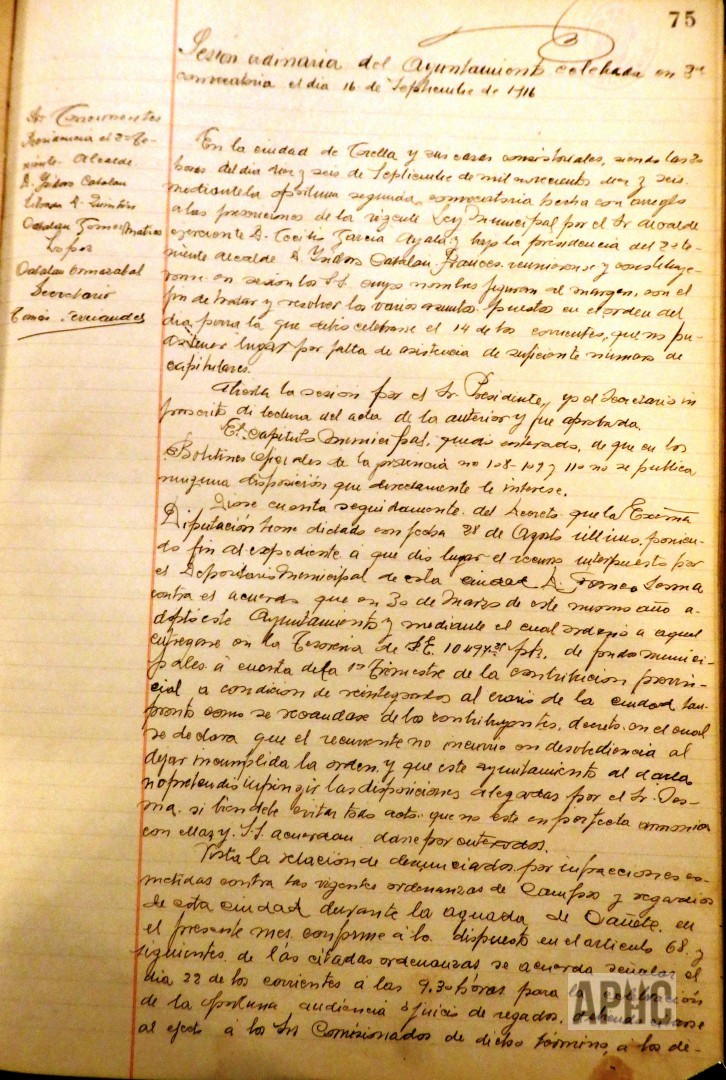 75
Sesion ordinaria del Ayuntamiento celebrada en 2ª
convocatoria el dia 16 de Septiembre de 1916
Sr Concurrentes
Presidencia el 2º Te-
niente Alcalde
D. Ysidro Catalan
Catalan Gomez Matias
Lopez
Catalan
Secretario
Tomás Fernandez
En la ciudad de Corella y sus casas consistoriales, siendo las 20
horas del dia diez y seis de Septiembre de mil novecientos diez y seis
mediante la oportuna segunda convocatoria hecha con arreglo
a las prescripciones de la vigente Ley Municipal por el Sr Alcalde
ejerciente D. Cecilio Garcia Ayala y bajo la presidencia del 2º te-
niente alcalde D Ysidro Catalan Frances reunieronse y constituye-
ronse en sesion los S.S. cuyos nombres figuran al margen, con el
fin de tratar y resolver los varios asuntos puestos en el orden del
dia para la que debio celebrarse el 14 de los corrientes, que no pu-
do tener lugar por falta de asistencia de suficiente numero de
capitulares.
Abierta la sesion por el Sr Presidente, yo el Secretario in
frascrito di lectura del acta de la anterior y fue aprobada.
El capitulo municipal quedó enterado, de que en los
Boletines oficiales de la provincia no 108-109 y 110 no se publica
ninguna disposición que directamente le interese.
Diose cuenta seguidamente del Decreto que la Excma
Diputación tiene dictado con fecha 28 de Agosto último, ponien-
do fin al expediente a que dio lugar el recurso interpuesto por
el Depositario Municipal de esta ciudad D. Lesma
contra el acuerdo que en 30 de Marzo de este mismo año a-
doptó este Ayuntamiento y mediante el cual ordenó a aquel
entregase en la Tesoreria de S.E. 10494 pts. de fondos munici-
pales á cuenta del 1er Trimestre de la contribucion provin-
cial, a condicion de reintegrados al erario de la ciudad tan
pronto como se recaudase de los contribuyentes, decreto en el cual
se declara que el recurrente no incurrio en desobediencia al
dejar incumplida la orden y que este ayuntamiento al darla
no pretendió infringir las disposiciones alegadas por el Sr. Les-
ma, si bien debe evitar todo acto que no este en perfecta armonia
con ellas y S.S. acuerdan darse por enterados.
Vista la relación de denunciados por infracciones co-
metidas contra las vigentes ordenanzas de Campos y regadios
de esta ciudad durante la aguada de Cañete en
el presente mes, conforme á lo dispuesto en el articulo 68 y
siguientes de las citadas ordenanzas se acuerda señalar el
dia 22 de los corrientes á las 9.30 horas para la celebración
de la oportuna audiencia ó juicio de regados, debiendo citarse
al efecto á los Srs Comisionados de dicho término, á los de-
APHC